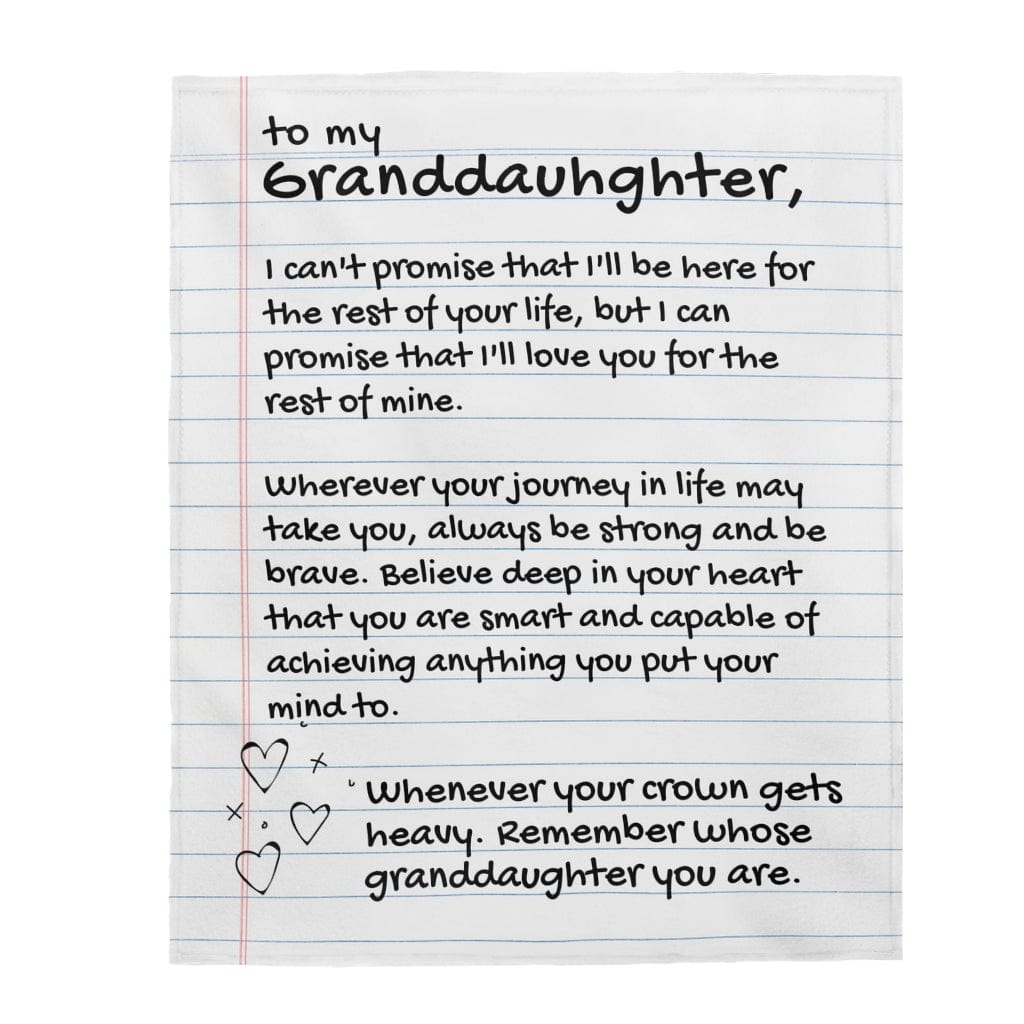 to my
Granddauhghter,
I can't promise that I'll be here for
the rest of your life, but I can
promise that I'll love you for the
rest of mine.
Wherever your journey in life may
take you, always be strong and be
brave. Believe deep in your heart
that you are smart and capable of
achieving anything you put your
mind to.
Whenever your crown gets
heavy. Remember whose
granddaughter you are.